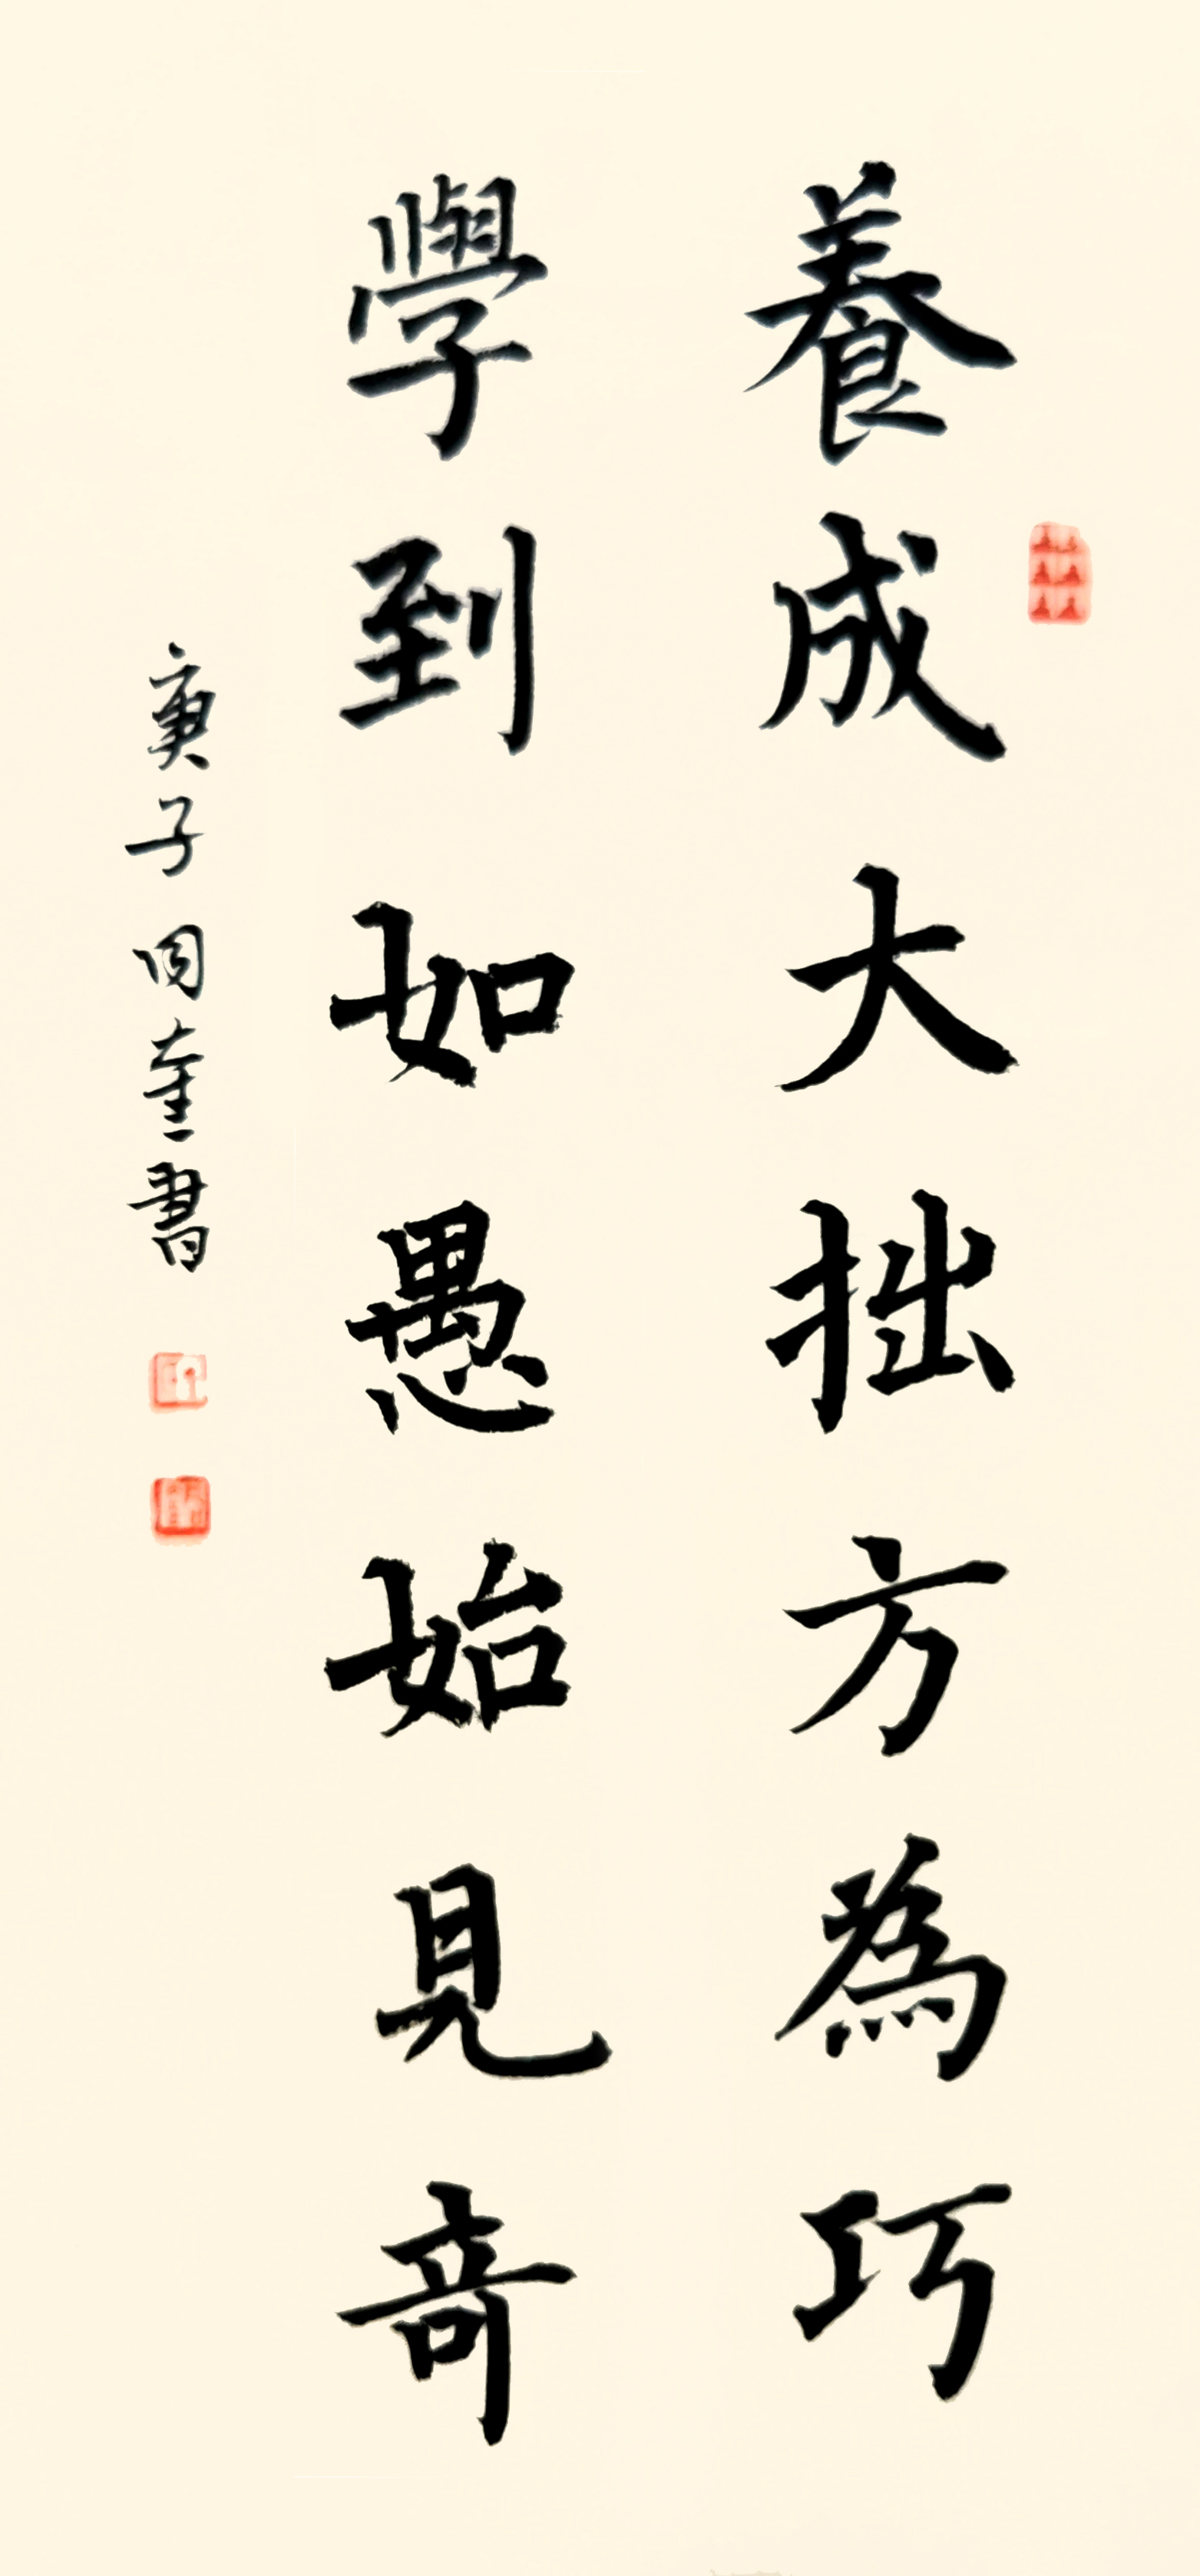 養成大拙方為巧
學到如愚始見奇
庚子同奎書